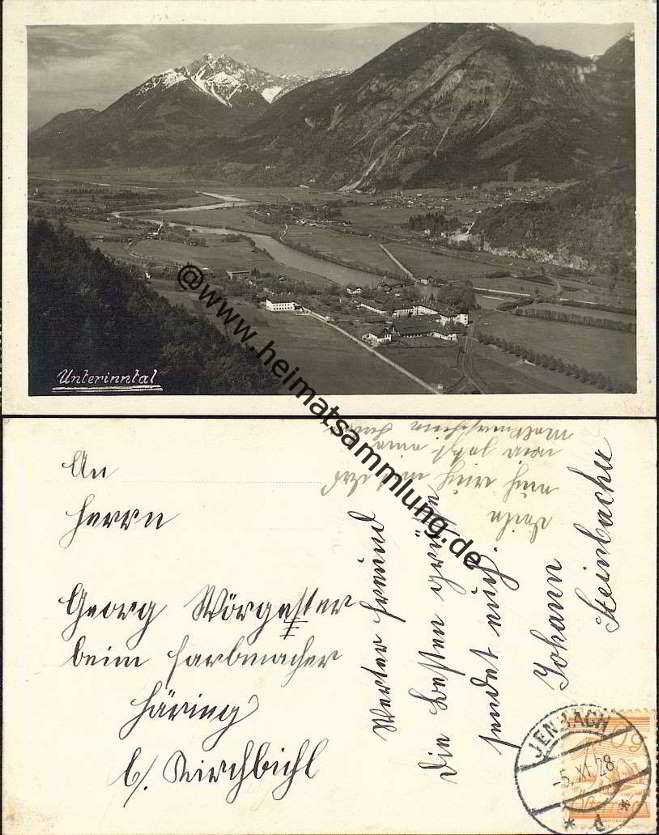 Unterinntal
@www.heimatsammlung.de
An
Herrn
Georg Wörgetter
beim Farbmacher
Häring
b/ Kirchbichl
Werter Freund
die besten grüße
sendet euch
Johann
Steinbacher
JENBACH
-5.XI.28